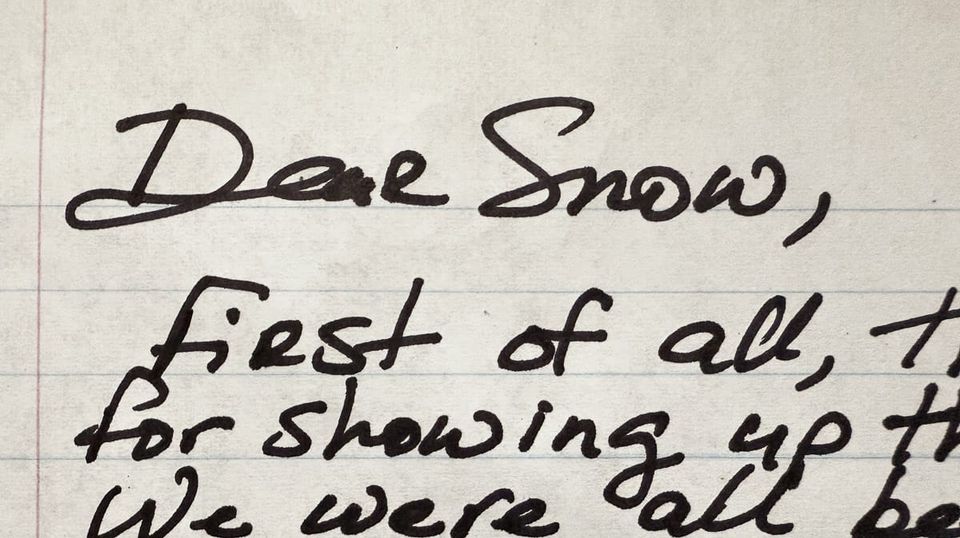 Dear Snow,
First of all, t
for showing up th
We were all be